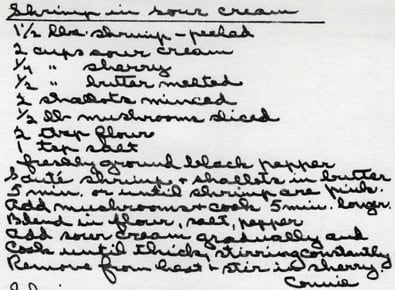 Shrimp in sour cream
1½ lbs. shrimp - peeled
2 cups sour cream
¼ " sherry
½ " butter melted
2 shallots minced
½ lb mushrooms sliced
2 tbsp flour
1 tsp salt
freshly ground black pepper
Sauté shrimp + shallots in butter
5 min. or until shrimp are pink.
Add mushrooms + cook 5 min. longer.
Blend in flour, salt, pepper
Add sour cream gradually and
Cook until thick, stirring constantly
Remove from heat + stir in sherry.
Connie